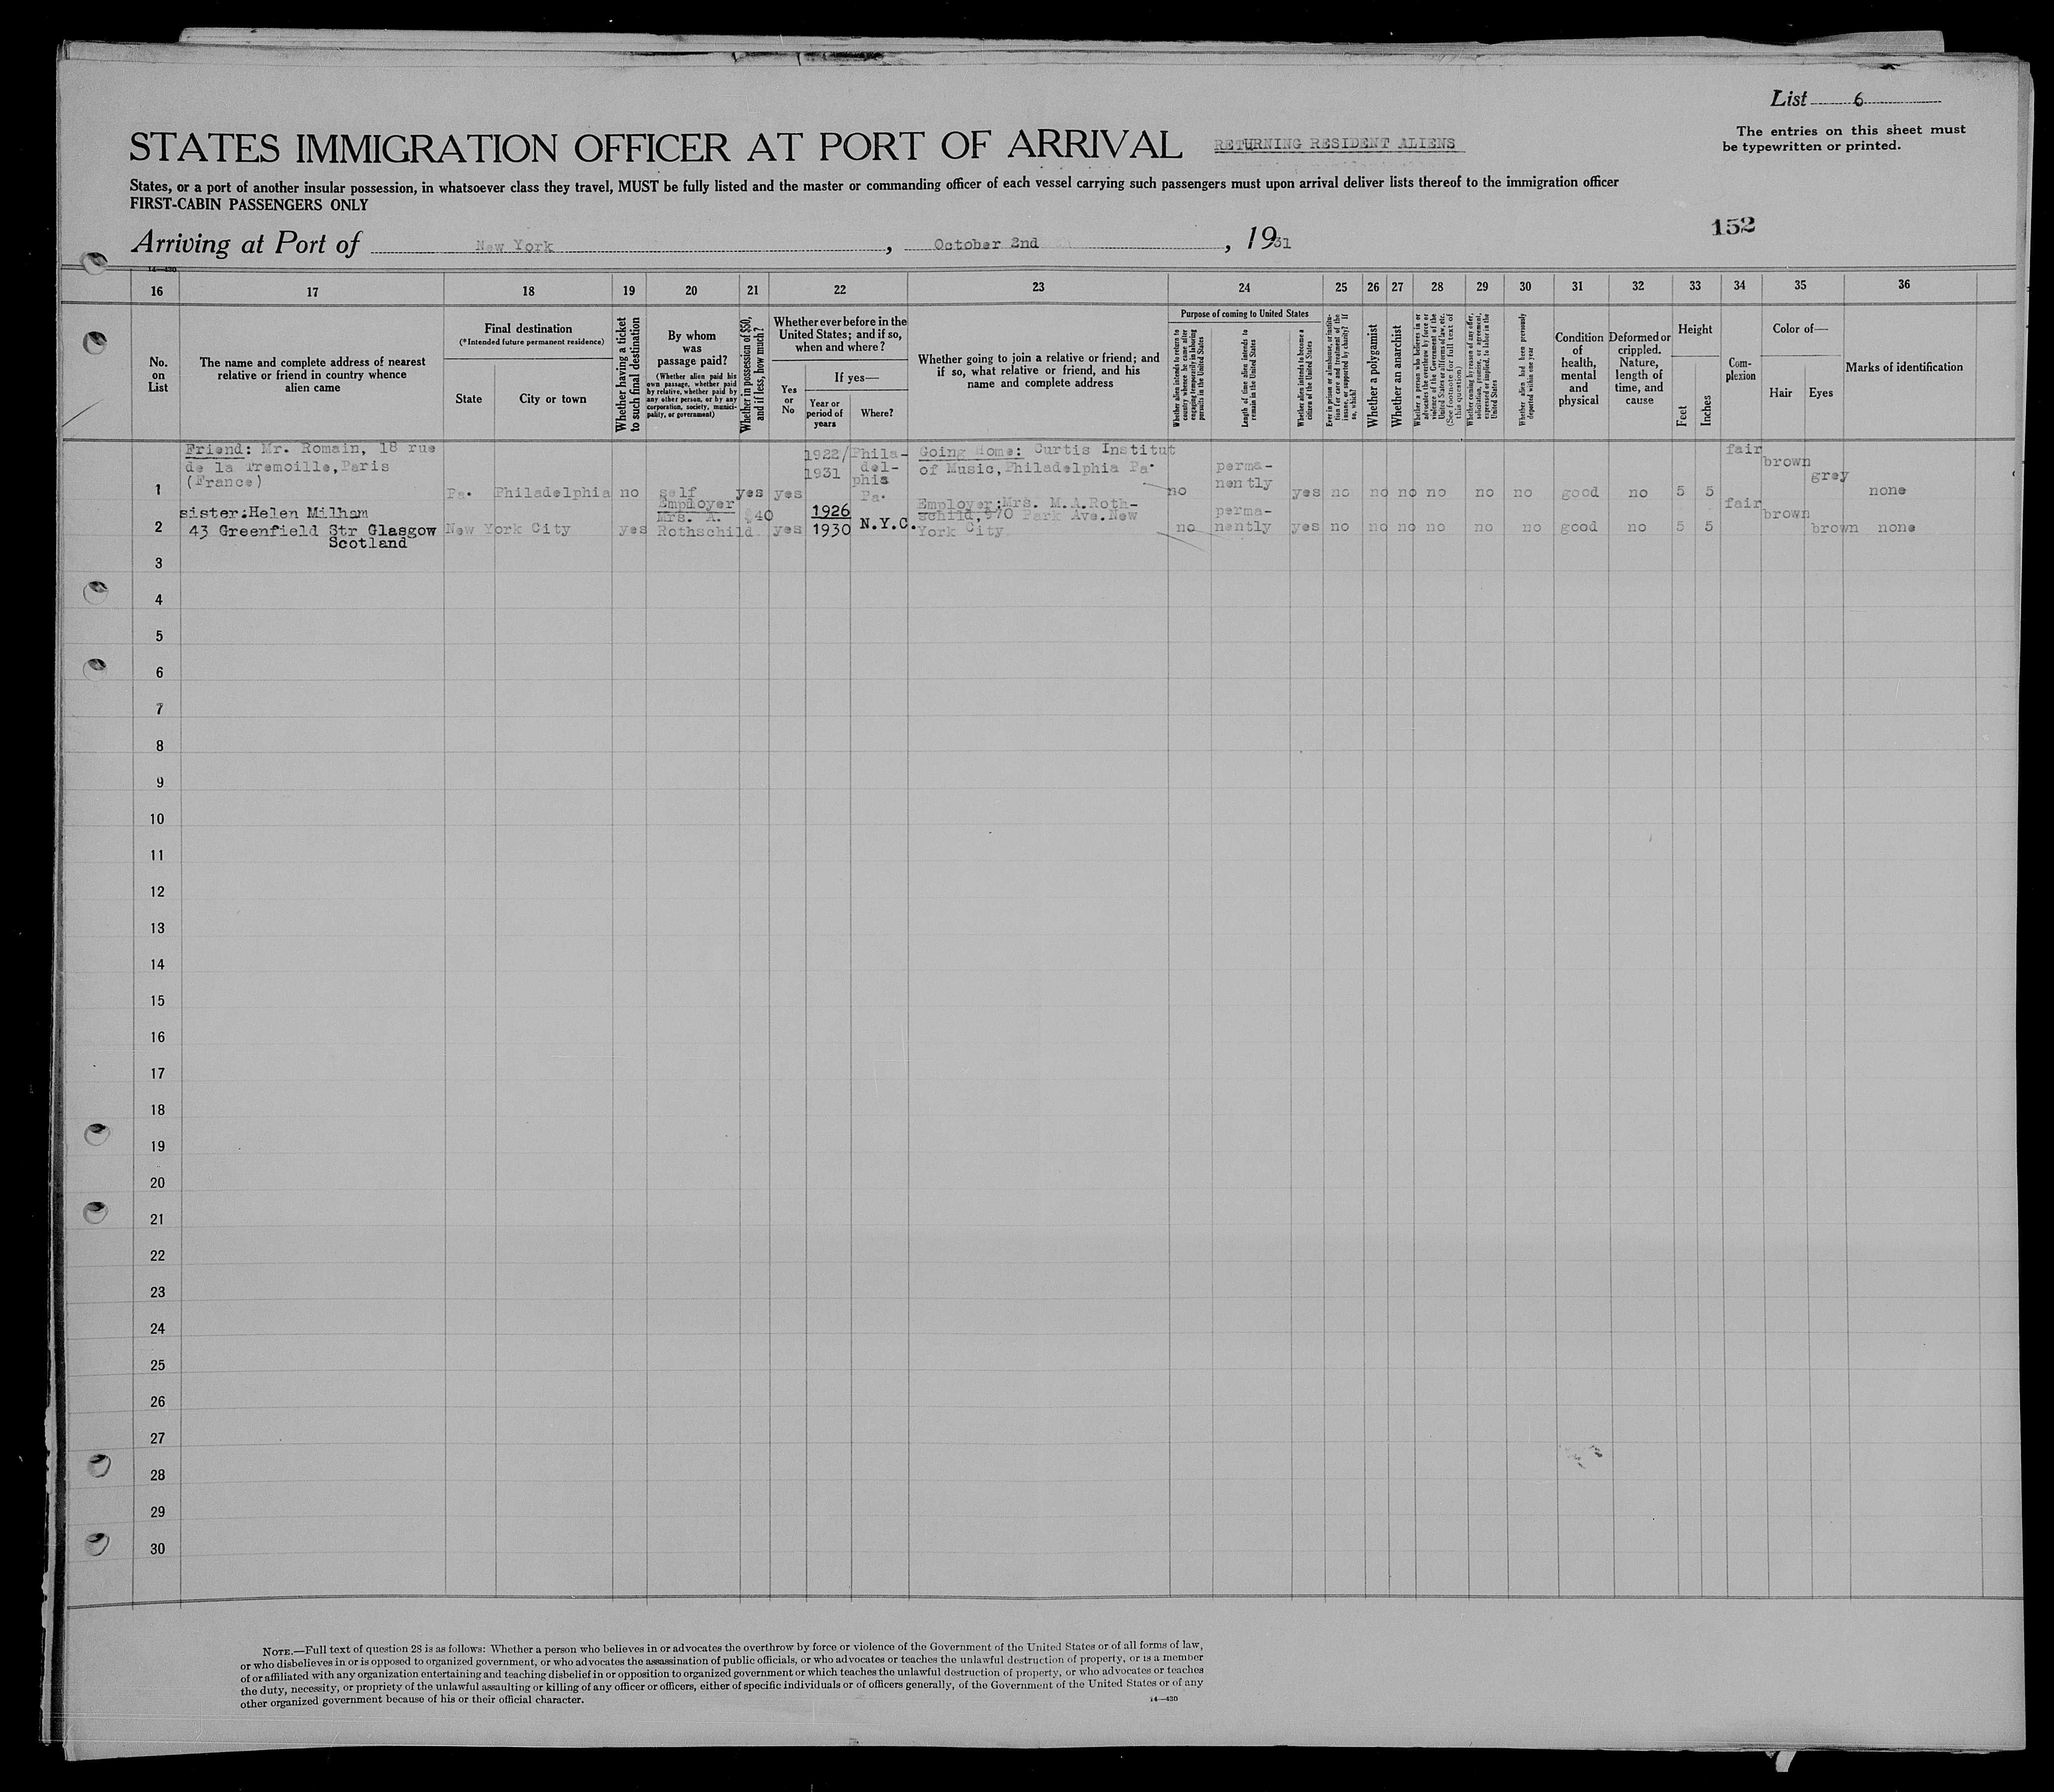 List 6
The entries on this sheet must
be typewritten or printed.
STATES IMMIGRATION OFFICER AT PORT OF ARRIVAL RETURNING RESIDENT ALIENS
States, or a port of another insular possession, in whatsoever class they travel, MUST be fully listed and the master or commanding officer of each vessel carrying such passengers must upon arrival deliver lists thereof to the immigration officer
FIRST-CABIN PASSENGERS ONLY
152
Arriving at Port of New York, October 2nd, 1931
14—430
16 17 18 19 20 21 22 23 24 25 26 27 28 29 30 31 32 33 34 35 36
No.
on
List
The name and complete address of nearest
relative or friend in country whence
alien came
Final destination
(*Intended future permanent residence)
State
City or town
Whether having a ticket
to such final destination
By whom
was
passage paid?
(Whether alien paid his
own passage, whether paid
by relative, whether paid by
any other person, or by any
corporation, society, munici-
pality, or government)
Whether in possession of $50,
and if less, how much?
Whether ever before in the
United States; and if so,
when and where?
Yes
or
No
If yes—
Year or
period of
years
Where?
Whether going to join a relative or friend; and
if so, what relative or friend, and his
name and complete address
Purpose of coming to United States
Whether alien intends to return to
country whence he came after
engaging temporarily in laboring
pursuits in the United States
Length of time alien intends to
remain in the United States
Whether alien intends to become a
citizen of the United States
Ever in prison or almshouse, or institu-
tion for care and treatment of the
insane, or supported by charity? If
so, which?
Whether a polygamist
Whether an anarchist
Whether a person who believes in or
advocates the overthrow by force or
violence of the Government of the
United States or all forms of law, etc.
(See footnote for full text of
this question)
Whether coming by reason of any offer,
solicitation, promise, or agreement,
expressed or implied, to labor in the
United States
Whether alien had been previously
deported within one year
Condition
of
health,
mental
and
physical
Deformed or
crippled.
Nature,
length of
time, and
cause
Height
Feet
Inches
Com-
plexion
Color of—
Hair
Eyes
Marks of identification
1
Friend: Mr. Romain, 18 rue
de la Tremoille, Paris
(France)
Pa. Philadelphia no self yes yes
1922/
1931
Phila-
del-
phia
Pa.
Going Home: Curtis Institut
of Music, Philadelphia Pa.
no
perma-
nently
yes no no no no no no good no 5 5 fair brown grey none
2
sister:Helen Milham
43 Greenfield Str Glasgow
Scotland
New York City yes
Employer
Mrs. A.
Rothschild
$40 yes
1926
1930
N.Y.C.
Employer:Mrs. M.A.Roth-
schild, 970 Park Ave. New
York City
no
perma-
nently
yes no no no no no no good no 5 5 fair brown brown none
3
4
5
6
7
8
9
10
11
12
13
14
15
16
17
18
19
20
21
22
23
24
25
26
27
28
29
30
NOTE.—Full text of question 28 is as follows: Whether a person who believes in or advocates the overthrow by force or violence of the Government of the United States or of all forms of law,
or who disbelieves in or is opposed to organized government, or who advocates the assassination of public officials, or who advocates or teaches the unlawful destruction of property, or is a member
of or affiliated with any organization entertaining and teaching disbelief in or opposition to organized government or which teaches the unlawful destruction of property, or who advocates or teaches
the duty, necessity, or propriety of the unlawful assaulting or killing of any officer or officers, either of specific individuals or of officers generally, of the Government of the United States or of any
other organized government because of his or their official character.
14—430